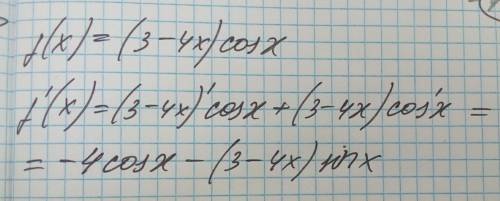 f(x) = (3-4x)cosx
f'(x) = (3-4x)'cosx + (3-4x)cos'x =
= -4cosx - (3-4x)sinx